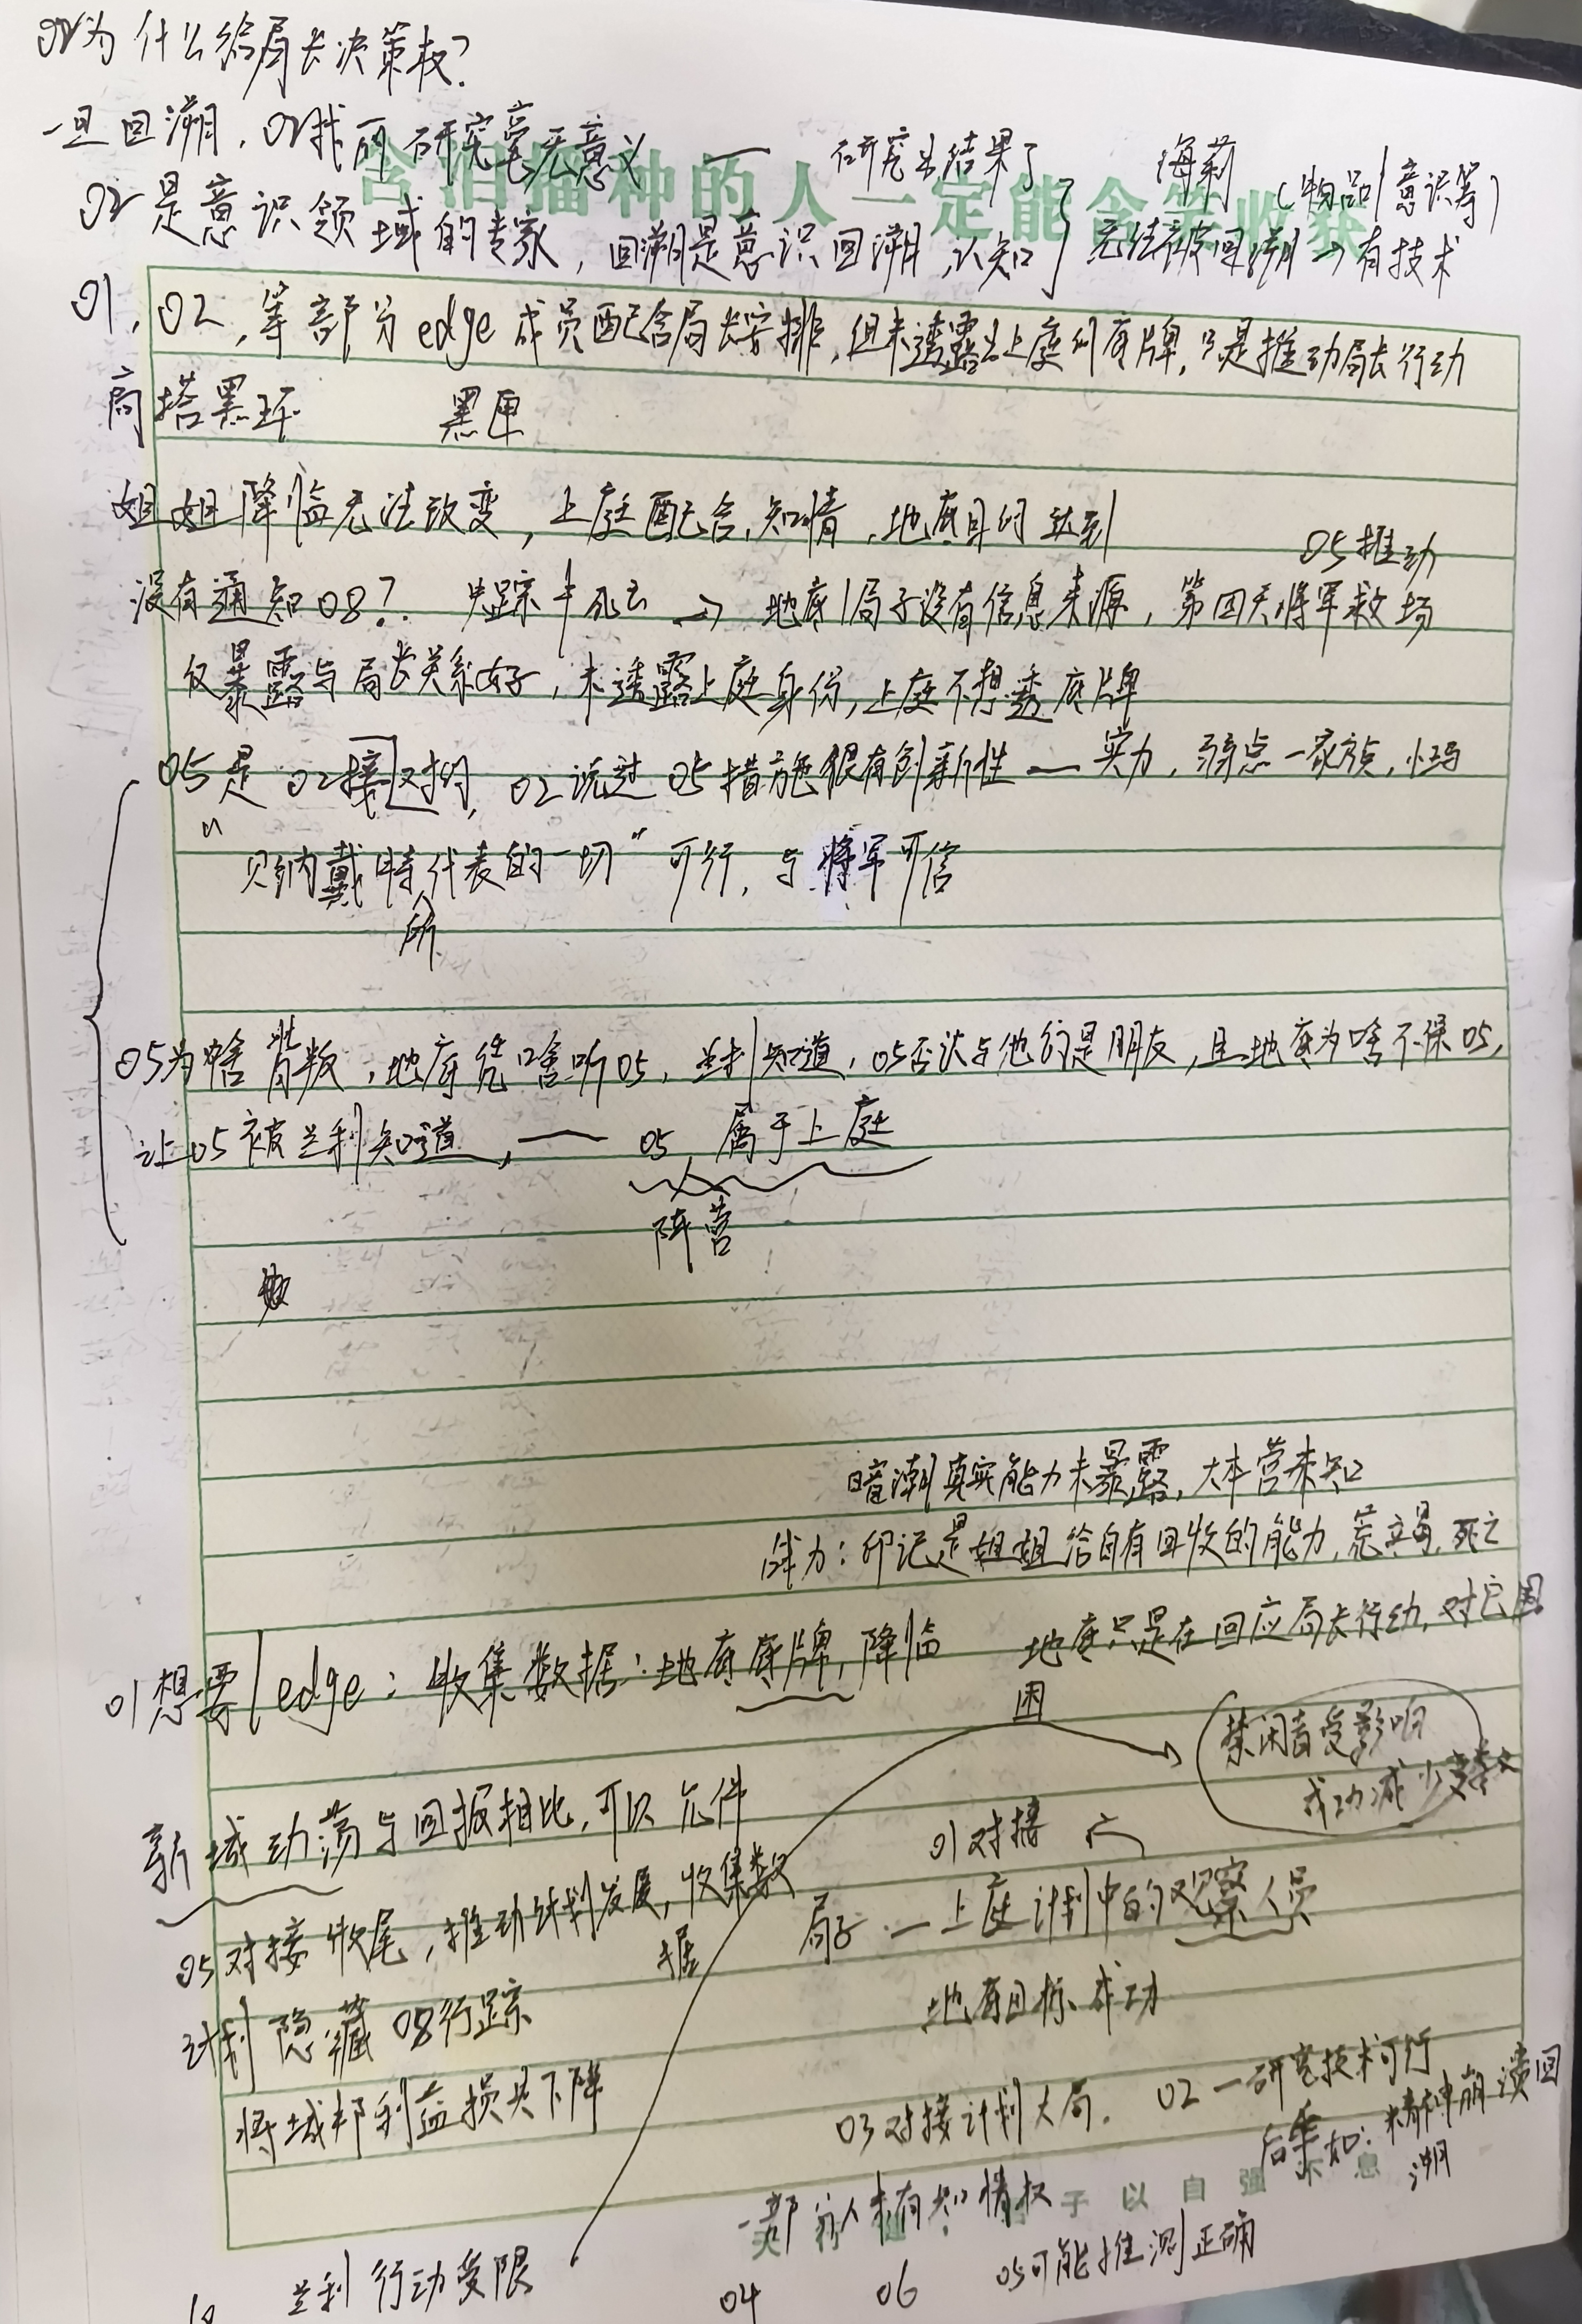 02为什么给局长决策权?
一旦回溯,02我的研究毫无意义 —— 研究出结果了 海莉 (物品/意识等)
含泪播种的人一定能含笑收获
02是意识领域的专家,回溯是意识回溯,认知 无法被回溯→有技术
01,02,等部分edge成员配合局长安排,但未透露出上庭的底牌,只是推动局长行动
高塔黑环 黑匣
姐姐降临无法改变,上庭配合,知情,地底目的达到
05推动
没有通知08? 失踪 死亡 → 地底/局子没有信息来源,第四天将军救场
仅暴露与局长关系好,未透露上庭身份,上庭不想透底牌
05是02接对的,02说过05措施很有创新性 — 实力,弱点—家族,
"贝纳戴特所代表的一切"可行,与将军可信
05为啥背叛,地底凭啥听05,兰利知道,05否认与他的是朋友,且地底为啥不保05,
让05被兰利知道, —— 05属于上庭
阵营
暗潮真实能力未暴露,大本营未知
战力:印记是姐姐给自有回收的能力, 死亡
01想要/edge:收集数据:地底底牌,降临 地底只是在回应局长行动,对它围
困
禁闭者受影响
成功减少变数
新城动荡与回报相比,可以允许
01对接
05对接收尾,推动计划发展,收集数
据
局子 — 上庭计划中的观察人员
计划隐藏08行踪
地底目标成功
将城邦利益损失下降
03对接计划大局. 02—研究技术可行
后果如:精神崩溃回
溯
一部分人未有知情权
子以自强不息
兰利行动受限
04 06 05可能推测正确